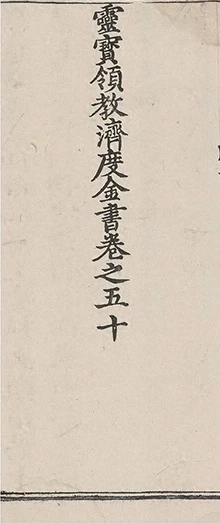 靈寳領教濟度金書卷之五十